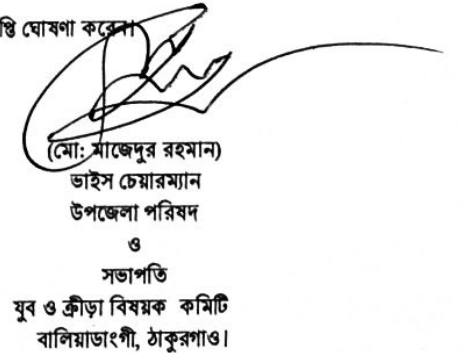 প্তি ঘোষণা করেন।
(মো: মাজেদুর রহমান)
ভাইস চেয়ারম্যান
উপজেলা পরিষদ
ও
সভাপতি
যুব ও ক্রীড়া বিষয়ক কমিটি
বালিয়াডাংগী, ঠাকুরগাও।